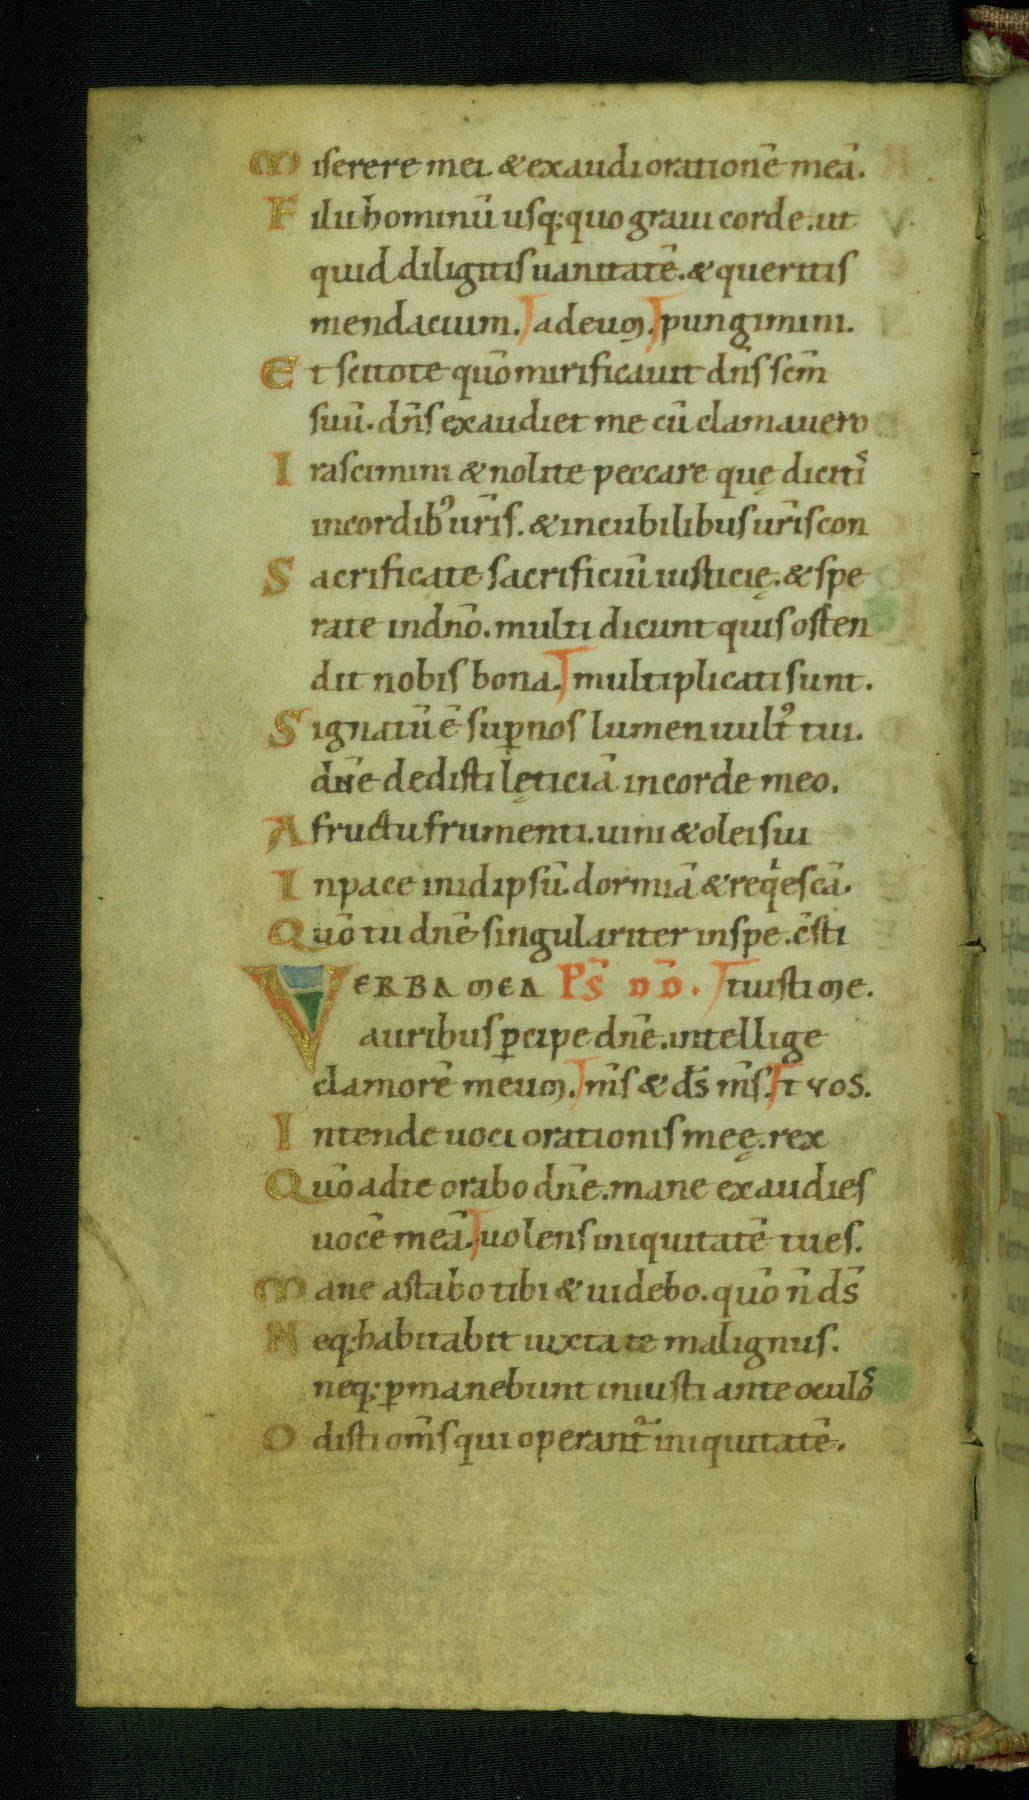 Miserere mei. & exaudi orationē meā.
Filii hominū usq; quo graui corde. ut
quid diligitis uanitatē. & queritis
mendacium. ad eum. pungimini.
Et scitote quō mirificauit dn̄s scm̄
suū. dn̄s exaudiet me cū clamauero
Irascimini & nolite peccare quę dicitis
in cordib' ur̄is. & in cubilibus ur̄is con
Sacrificate sacrificiū iusticię. & spe
rate in dn̄o. multi dicunt quis osten
dit nobis bona. multiplicati sunt.
Signatū ē sup nos lumen uult' tui.
dn̄e dedisti lęticiā in corde meo.
A fructu frumenti. uini & olei sui
In pace in idipsū. dormiā & reqiescā.
Quō tu dn̄e singulariter in spe. c̄sti
VERBA MEA PS̄ DD̄. tuisti me.
auribus pcipe dn̄e. intellige
clamorē meum. m̄s & ds̄ m̄s. t vos.
Intende uoci orationis meę. rex
Quō ad te orabo dn̄e. mane exaudies
uocē meā. uolens iniquitatē tu es.
Mane astabo tibi & uidebo. quō n̄ ds̄
Neq; habitabit iuxta te malignus.
neq; pmanebunt iniusti ante oculos
Odisti om̄s qui operant' iniquitatē.